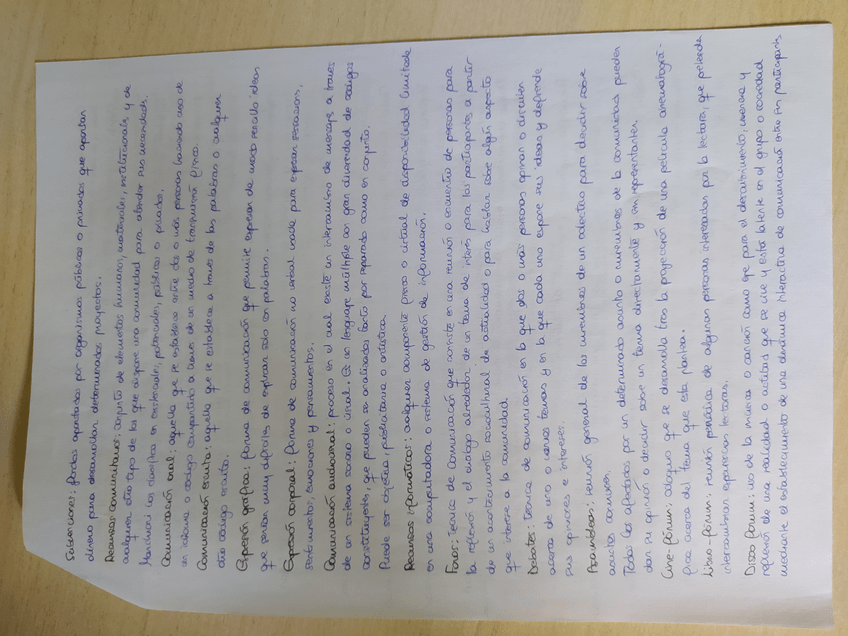 Subvenciones: fondos aportados por organismos públicos o privados que aportan
dinero para desarrollar determinados proyectos.
Recursos comunitarios: conjunto de elementos humanos, materiales, institucionales, y de
cualquier otro tipo de los que dispone una comunidad para abordar sus necesidades.
Marchioni los clasifica en existenciales, potenciales, públicos o privados.
Comunicación oral: aquella que se establece entre dos o más personas haciendo uso de
un idioma o código compartido a través de un medio de transmisión físico.
Comunicación escrita: aquella que se establece a través de las palabras o cualquier
otro código escrito.
Expresión gráfica: forma de comunicación que permite expresar de modo sencillo ideas
que serían muy difíciles de explicar solo con palabras.
Expresión corporal: forma de comunicación no verbal usada para expresar sensaciones,
sentimientos, emociones y pensamientos.
Comunicación audiovisual: proceso en el cual existe un intercambio de mensajes a través
de un sistema sonoro o visual. Es un lenguaje múltiple con gran diversidad de códigos
constituyentes, que pueden ser analizados tanto por separado como en conjunto.
Puede ser objetiva, publicitaria o artística.
Recursos informáticos: cualquier componente físico o virtual de disponibilidad limitada
en una computadora o sistema de gestión de información.
Foros: técnica de comunicación que consiste en una reunión o encuentro de personas para
la reflexión y el diálogo alrededor de un tema de interés para los participantes, a partir
de un acontecimiento sociocultural de actualidad o para insistir sobre algún aspecto
que interese a la comunidad.
Debates: técnica de comunicación en la que dos o más personas opinan o discuten
acerca de uno o varios temas y en la que cada uno expone sus ideas y defiende
sus opiniones e intereses.
Asambleas: reunión general de los miembros de un colectivo para decidir sobre
asuntos comunes.
Todos los afectados por un determinado asunto o miembros de la comunidad pueden
dar su opinión o decidir sobre un tema directamente y sin representantes.
Cine-fórum: coloquio que se desarrolla tras la proyección de una película cinematográ-
fica acerca del tema que esta plantea.
Libro-fórum: reunión periódica de algunas personas interesadas por la lectura, que pretende
intercambiar experiencias lectoras.
Disco fórum: uso de la música o canción como eje para el descubrimiento, vivencia y
reflexión de una realidad o actitudes que se vive y está latente en el grupo o sociedad
mediante el establecimiento de una dinámica interactiva de comunicación entre los participants